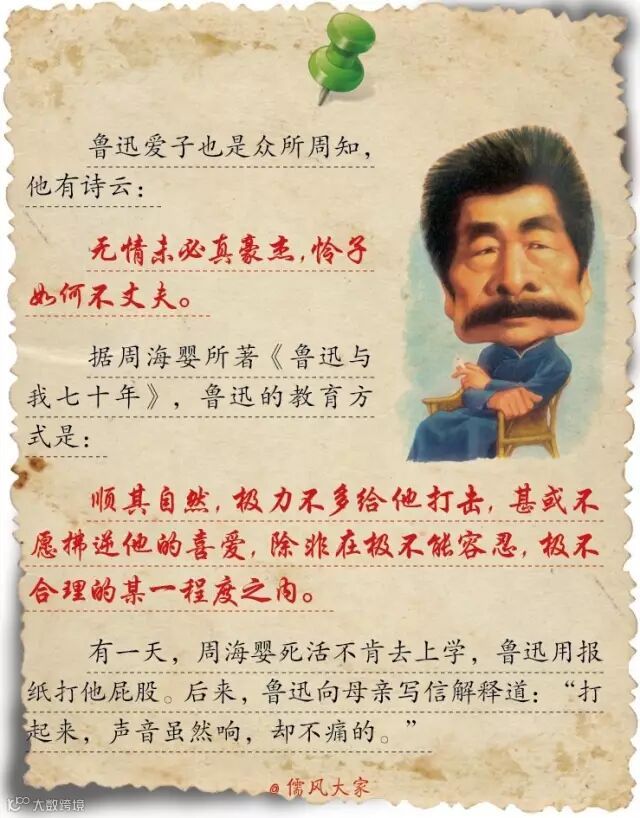 鲁迅爱子也是众所周知，
他有诗云：
无情未必真豪杰，怜子
如何不丈夫。
据周海婴所著《鲁迅与
我七十年》，鲁迅的教育方
式是：
顺其自然，极力不多给他打击，甚或不
愿拂逆他的喜爱，除非在极不能容忍，极不
合理的某一程度之内。
有一天，周海婴死活不肯去上学，鲁迅用报
纸打他屁股。后来，鲁迅向母亲写信解释道：“打
起来，声音虽然响，却不痛的。”
@儒风大家
大数跨境